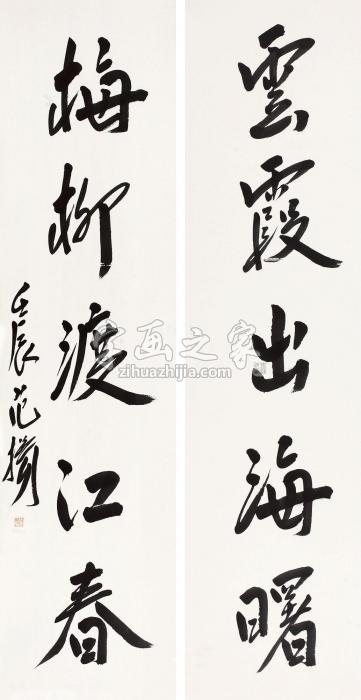 雲霞出海曙
梅柳渡江春
壬辰范揚
書画之家
zihuazhijia.com